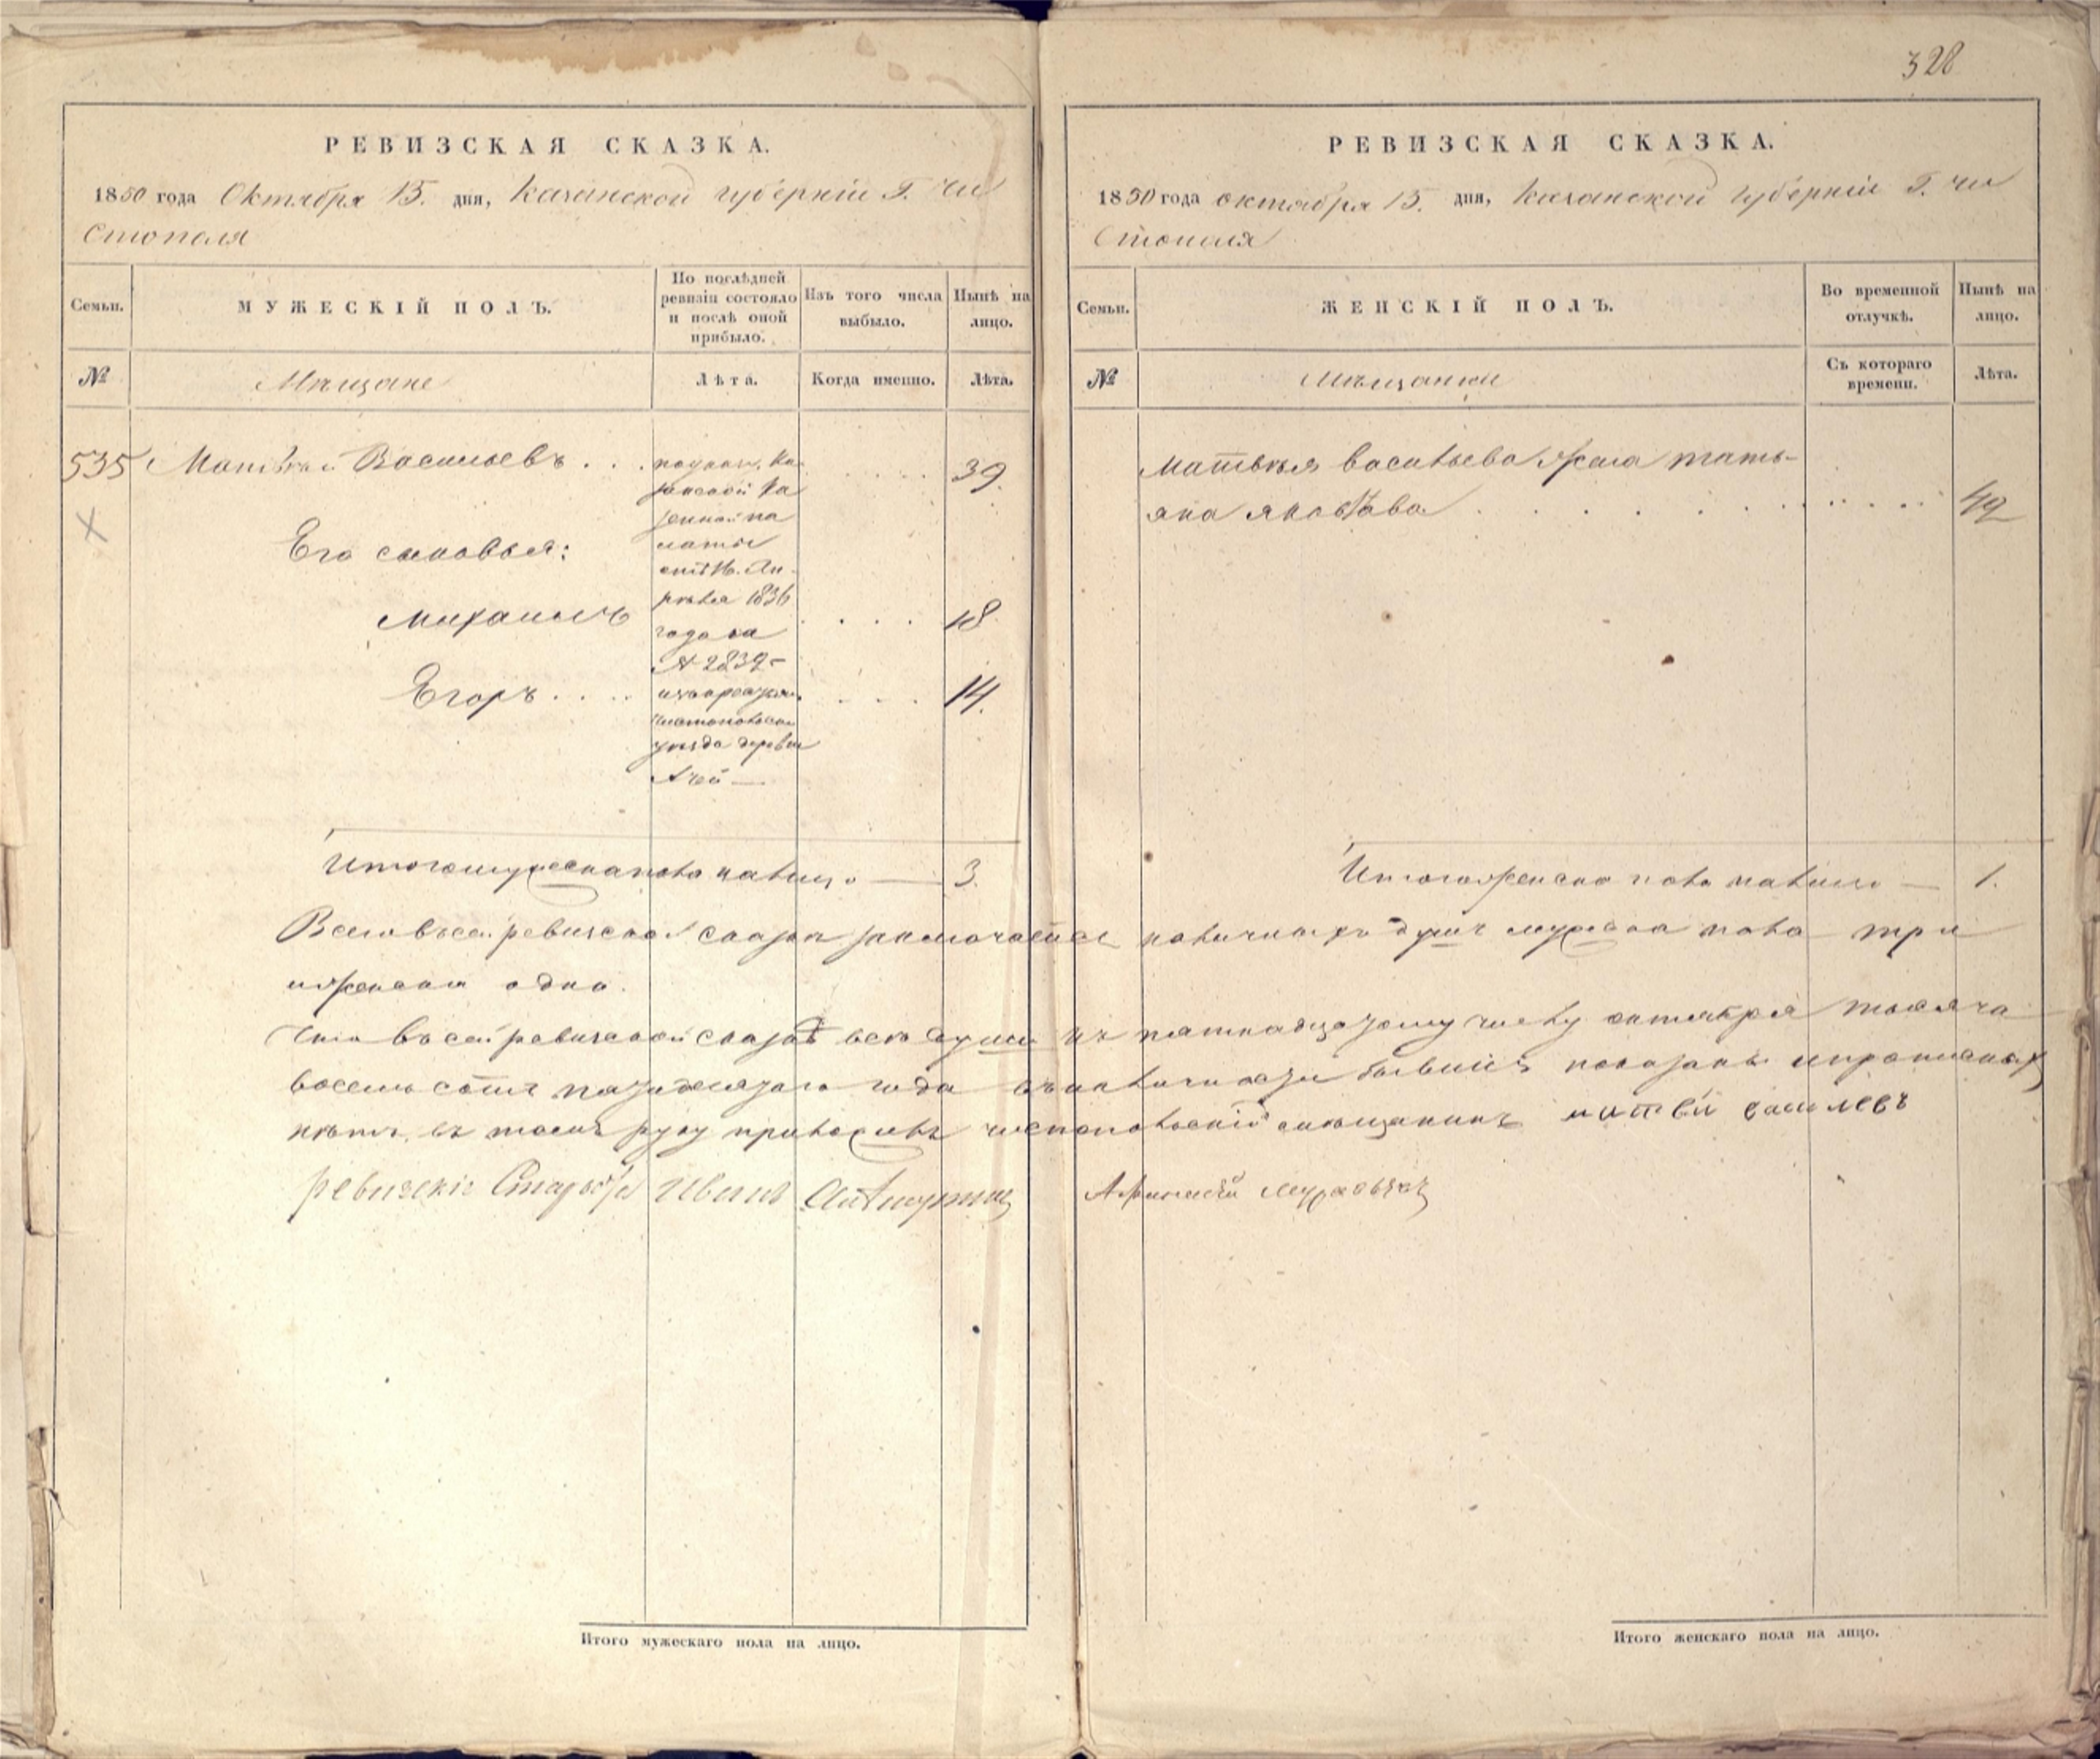 328
РЕВИЗСКАЯ СКАЗКА.
1850 года Октября 15. дня, Казанской губерніи Г. Чи
стополя
Семьи.
МУЖЕСКІЙ ПОЛЪ.
По послѣдней ревизіи состояло и послѣ оной прибыло.
Изъ того числа выбыло.
Нынѣ на лицо.
№
Мѣщане
Лѣта.
Когда именно.
Лѣта.
535 Матвѣй Васильевъ . . . 39.
по указу Ка
занской Ка
зенной па
латы
отъ 16. Ап
рѣля 1836
года за
№ 2839
Чистопольск
уѣзда деревни
Ачей —
Его сыновья:
Михаилъ . . . . 18
Егоръ . . . . 14.
Итого мужеска пола налицо — 3.
РЕВИЗСКАЯ СКАЗКА.
1850 года октября 15. дня, Казанской Губерніи Г. Чи
стополя
Семьи.
ЖЕНСКІЙ ПОЛЪ.
Во временной отлучкѣ.
Нынѣ на лицо.
№
Мѣщанки
Съ котораго времени.
Лѣта.
Матвѣя Васильева жена Тать-
яна Яковлева . . . . . 42
Итого женска пола налицо — 1.
Всего въ сей ревизской сказкѣ заключается наличныхъ душъ мужска пола три
и женска одна.
Что въ сей ревизской сказкѣ всѣ души къ пятнадцатому числу октября тысяча
восемь сотъ пятидесятаго года въ наличности бывшія показаны и прописныхъ
нѣтъ, въ томъ руку приложилъ чистопольскій мѣщанинъ матвѣй василевъ
ревизскіе Старосты Иванъ
Афанасій
Итого мужескаго пола на лицо.
Итого женскаго пола на лицо.